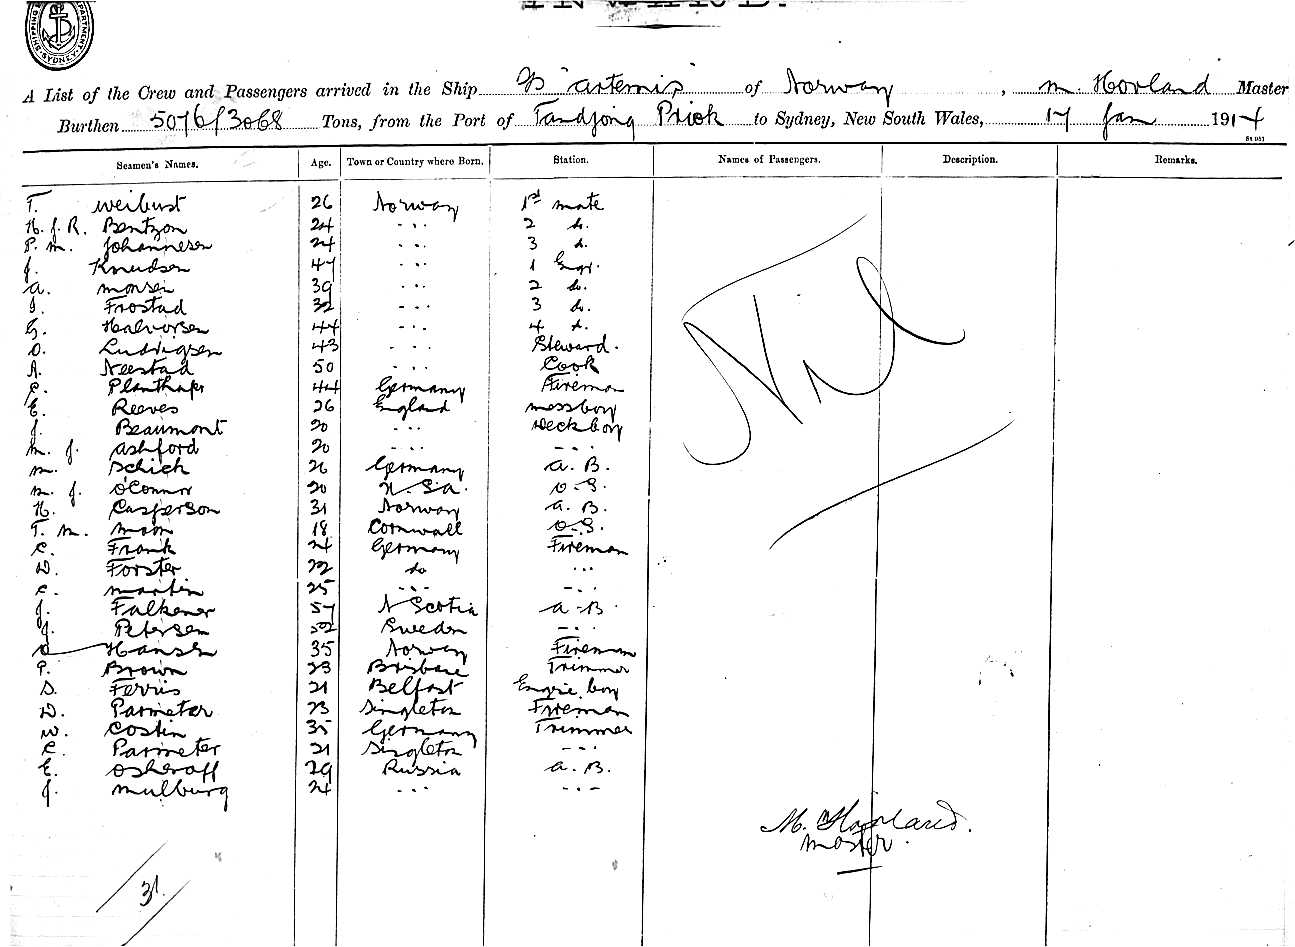 SHIPPING DEPARTMENT SYDNEY
INWARD.
A List of the Crew and Passengers arrived in the Ship SS "Artemis" of Norway, M. Hovland Master
Burthen 5076/3068 Tons, from the Port of Tandjong Priok to Sydney, New South Wales, 17 Jan 1914
Seamen's Names. Age. Town or Country where Born. Station. Names of Passengers. Description. Remarks.
T. Weibust 26 Norway 1st mate
H. J. R. Bentzon 24 - - - 2 d.
P. M. Johannesen 24 - - - 3 d.
J. Knudsen 47 - - - 1 Engr.
A. Monsen 39 - - - 2 d.
I. Frostad 32 - - - 3 d.
G. Halvorsen 44 - - - 4 d.
O. Ludvigsen 43 - - - Steward.
A. Neestad 50 - - - Cook
C. Planthafr 44 Germany Fireman
E. Reeves 26 England messboy
J. Beaumont 20 - - - Deck boy
M. J. Ashford 20 - - - - - -
M. Schich 26 Germany A. B.
M. J. O'Connor 20 U. S. A. O. S.
H. Casperson 31 Norway A. B.
T. M. Moon 18 Cornwall O. S.
C. Frank 24 Germany Fireman
W. Forster 22 do - - -
C. Martin 25 - - - - - -
J. Falkener 57 N Scotia A. B.
J. Petersen 52 Sweden - - -
O Hansen 35 Norway Fireman
P. Brown 23 Brisbane Trimmer
S. Ferris 21 Belfast Engine boy
W. Parmeter 23 Singleton Fireman
W. Costin 35 Germany Trimmer
C. Parmeter 21 Singleton - - -
E. Osheroff 29 Russia A. B.
J. Mulburg 24 - - - - - -
Nil
M. Hovland.
Master.
31.